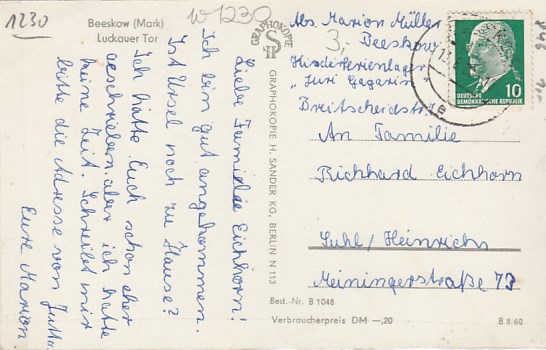 1230
W 1230
Beeskow (Mark)
Luckauer Tor
Liebe Familie Eichhorn!
Ich bin gut angekommen.
Ist Ursel noch zu Hause?
Ich hätte Euch schon eher
geschrieben, aber ich hatte
keine Zeit. Schreibt mir
bitte die Adresse von Jutta.
Eure Marion
GRAPHOKOPIE
GRAPHOKOPIE H. SANDER KG, BERLIN N 113
Abs. Marion Müller
3,
Beeskow
Kinderferienlager
"Juri Gagarin"
Breitscheidstr.
10
DEUTSCHE
DEMOKRATISCHE REPUBLIK
An Familie
Richhard Eichhorn
Suhl/Heinrichs
Meiningerstraße 73
Best.-Nr. B 1048
Verbraucherpreis DM —,20
B 8/60